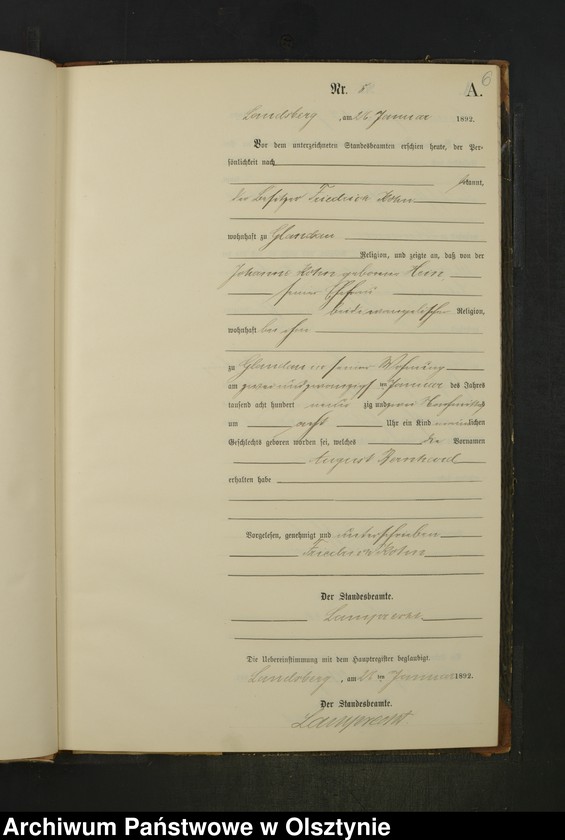 6
Nr. 5 A.
Landsberg, am 26 Januar 1892.
Vor dem unterzeichneten Standesbeamten erschien heute, der Per-
sönlichkeit nach
kannt,
der Besitzer Friedrich Kohn
wohnhaft zu Glandau
Religion, und zeigte an, daß von der
Johanne Kohn geborene
seiner Ehefrau
beide evangelischer Religion,
wohnhaft bei ihm
zu Glandau in seiner Wohnung
am zwei und zwanzigsten Januar des Jahres
tausend acht hundert neun zig und zwei Nachmittags
um acht Uhr ein Kind männlichen
Geschlechts geboren worden sei, welches die Vornamen
August
erhalten habe
Vorgelesen, genehmigt und unterschrieben
Friedrich Kohn
Der Standesbeamte.
Lamprecht
Die Uebereinstimmung mit dem Hauptregister beglaubigt.
Landsberg, am 26 ten Januar 1892.
Der Standesbeamte.
Lamprecht
Archiwum Państwowe w Olsztynie